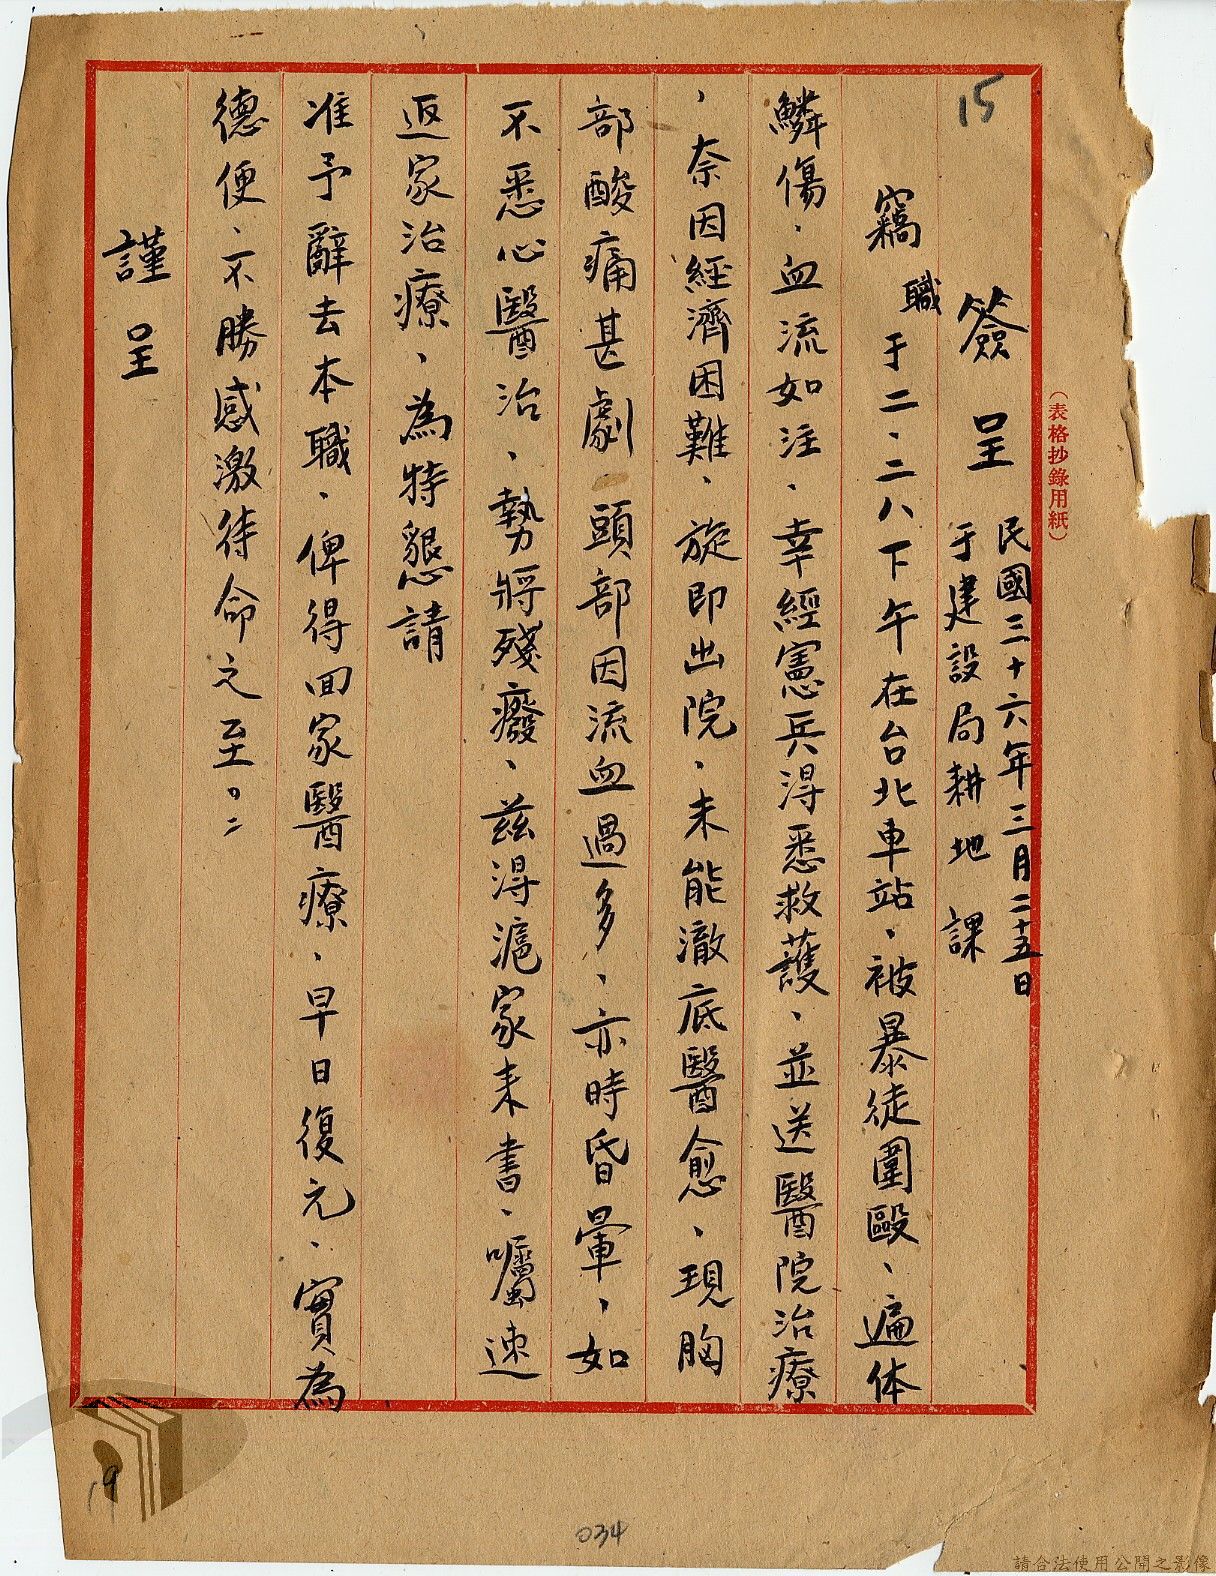 15
（表格抄錄用紙）
簽呈 民國三十六年三月二十五日
于建設局耕地課
竊職于二、二八下午在台北車站、被暴徒圍毆、遍体
鱗傷、血流如注、幸經憲兵得悉救護、並送醫院治療
、奈因經濟困難、旋即出院、未能澈底醫愈、現胸
部酸痛甚劇 頭部因流血過多、亦時昏暈、如
不悉心醫治、勢將殘廢、茲得滬家来書、囑速
返家治療、為特懇請
准予辭去本職、俾得回家醫療、早日復元、實為
德便、不勝感激待命之至。
謹呈
19
034
請合法使用公開之影像